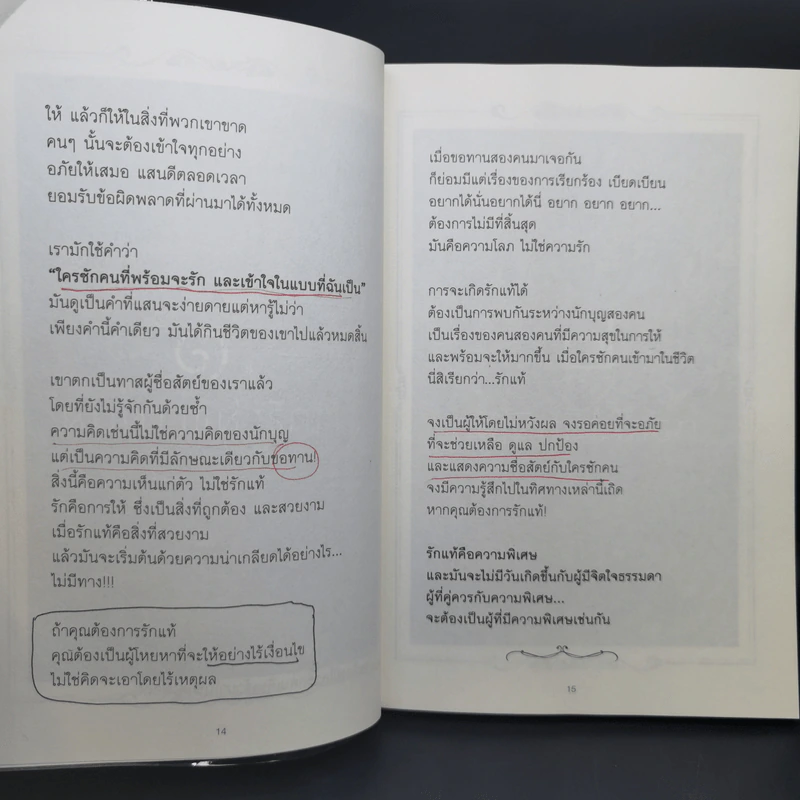 ให้ แล้วก็ให้ในสิ่งที่พวกเขาขาด
คนๆ นั้นจะต้องเข้าใจทุกอย่าง
อภัยให้เสมอ แสนดีตลอดเวลา
ยอมรับข้อผิดพลาดที่ผ่านมาได้ทั้งหมด
เรามักใช้คำว่า
“ใครซักคนที่พร้อมจะรัก และเข้าใจในแบบที่ฉันเป็น”
มันดูเป็นคำที่แสนจะง่ายดายแต่หารู้ไม่ว่า
เพียงคำนี้คำเดียว มันได้กินชีวิตของเขาไปแล้วหมดสิ้น
เขาตกเป็นทาสผู้ซื่อสัตย์ของเราแล้ว
โดยที่ยังไม่รู้จักกันด้วยซ้ำ
ความคิดเช่นนี้ไม่ใช่ความคิดของนักบุญ
แต่เป็นความคิดที่มีลักษณะเดียวกับขอทาน!
สิ่งนี้คือความเห็นแก่ตัว ไม่ใช่รักแท้
รักคือการให้ ซึ่งเป็นสิ่งที่ถูกต้อง และสวยงาม
เมื่อรักแท้คือสิ่งที่สวยงาม
แล้วมันจะเริ่มต้นด้วยความน่าเกลียดได้อย่างไร...
ไม่มีทาง!!!
ถ้าคุณต้องการรักแท้
คุณต้องเป็นผู้โหยหาที่จะให้อย่างไร้เงื่อนไข
ไม่ใช่คิดจะเอาโดยไร้เหตุผล
14
เมื่อขอทานสองคนมาเจอกัน
ก็ย่อมมีแต่เรื่องของการเรียกร้อง เบียดเบียน
อยากได้นั่นอยากได้นี่ อยาก อยาก อยาก...
ต้องการไม่มีที่สิ้นสุด
มันคือความโลภ ไม่ใช่ความรัก
การจะเกิดรักแท้ได้
ต้องเป็นการพบกันระหว่างนักบุญสองคน
เป็นเรื่องของคนสองคนที่มีความสุขในการให้
และพร้อมจะให้มากขึ้น เมื่อใครซักคนเข้ามาในชีวิต
นี่สิเรียกว่า...รักแท้
จงเป็นผู้ให้โดยไม่หวังผล จงรอคอยที่จะอภัย
ที่จะช่วยเหลือ ดูแล ปกป้อง
และแสดงความซื่อสัตย์กับใครซักคน
จงมีความรู้สึกไปในทิศทางเหล่านี้เถิด
หากคุณต้องการรักแท้!
รักแท้คือความพิเศษ
และมันจะไม่มีวันเกิดขึ้นกับผู้มีจิตใจธรรมดา
ผู้ที่คู่ควรกับความพิเศษ...
จะต้องเป็นผู้ที่มีความพิเศษเช่นกัน
15